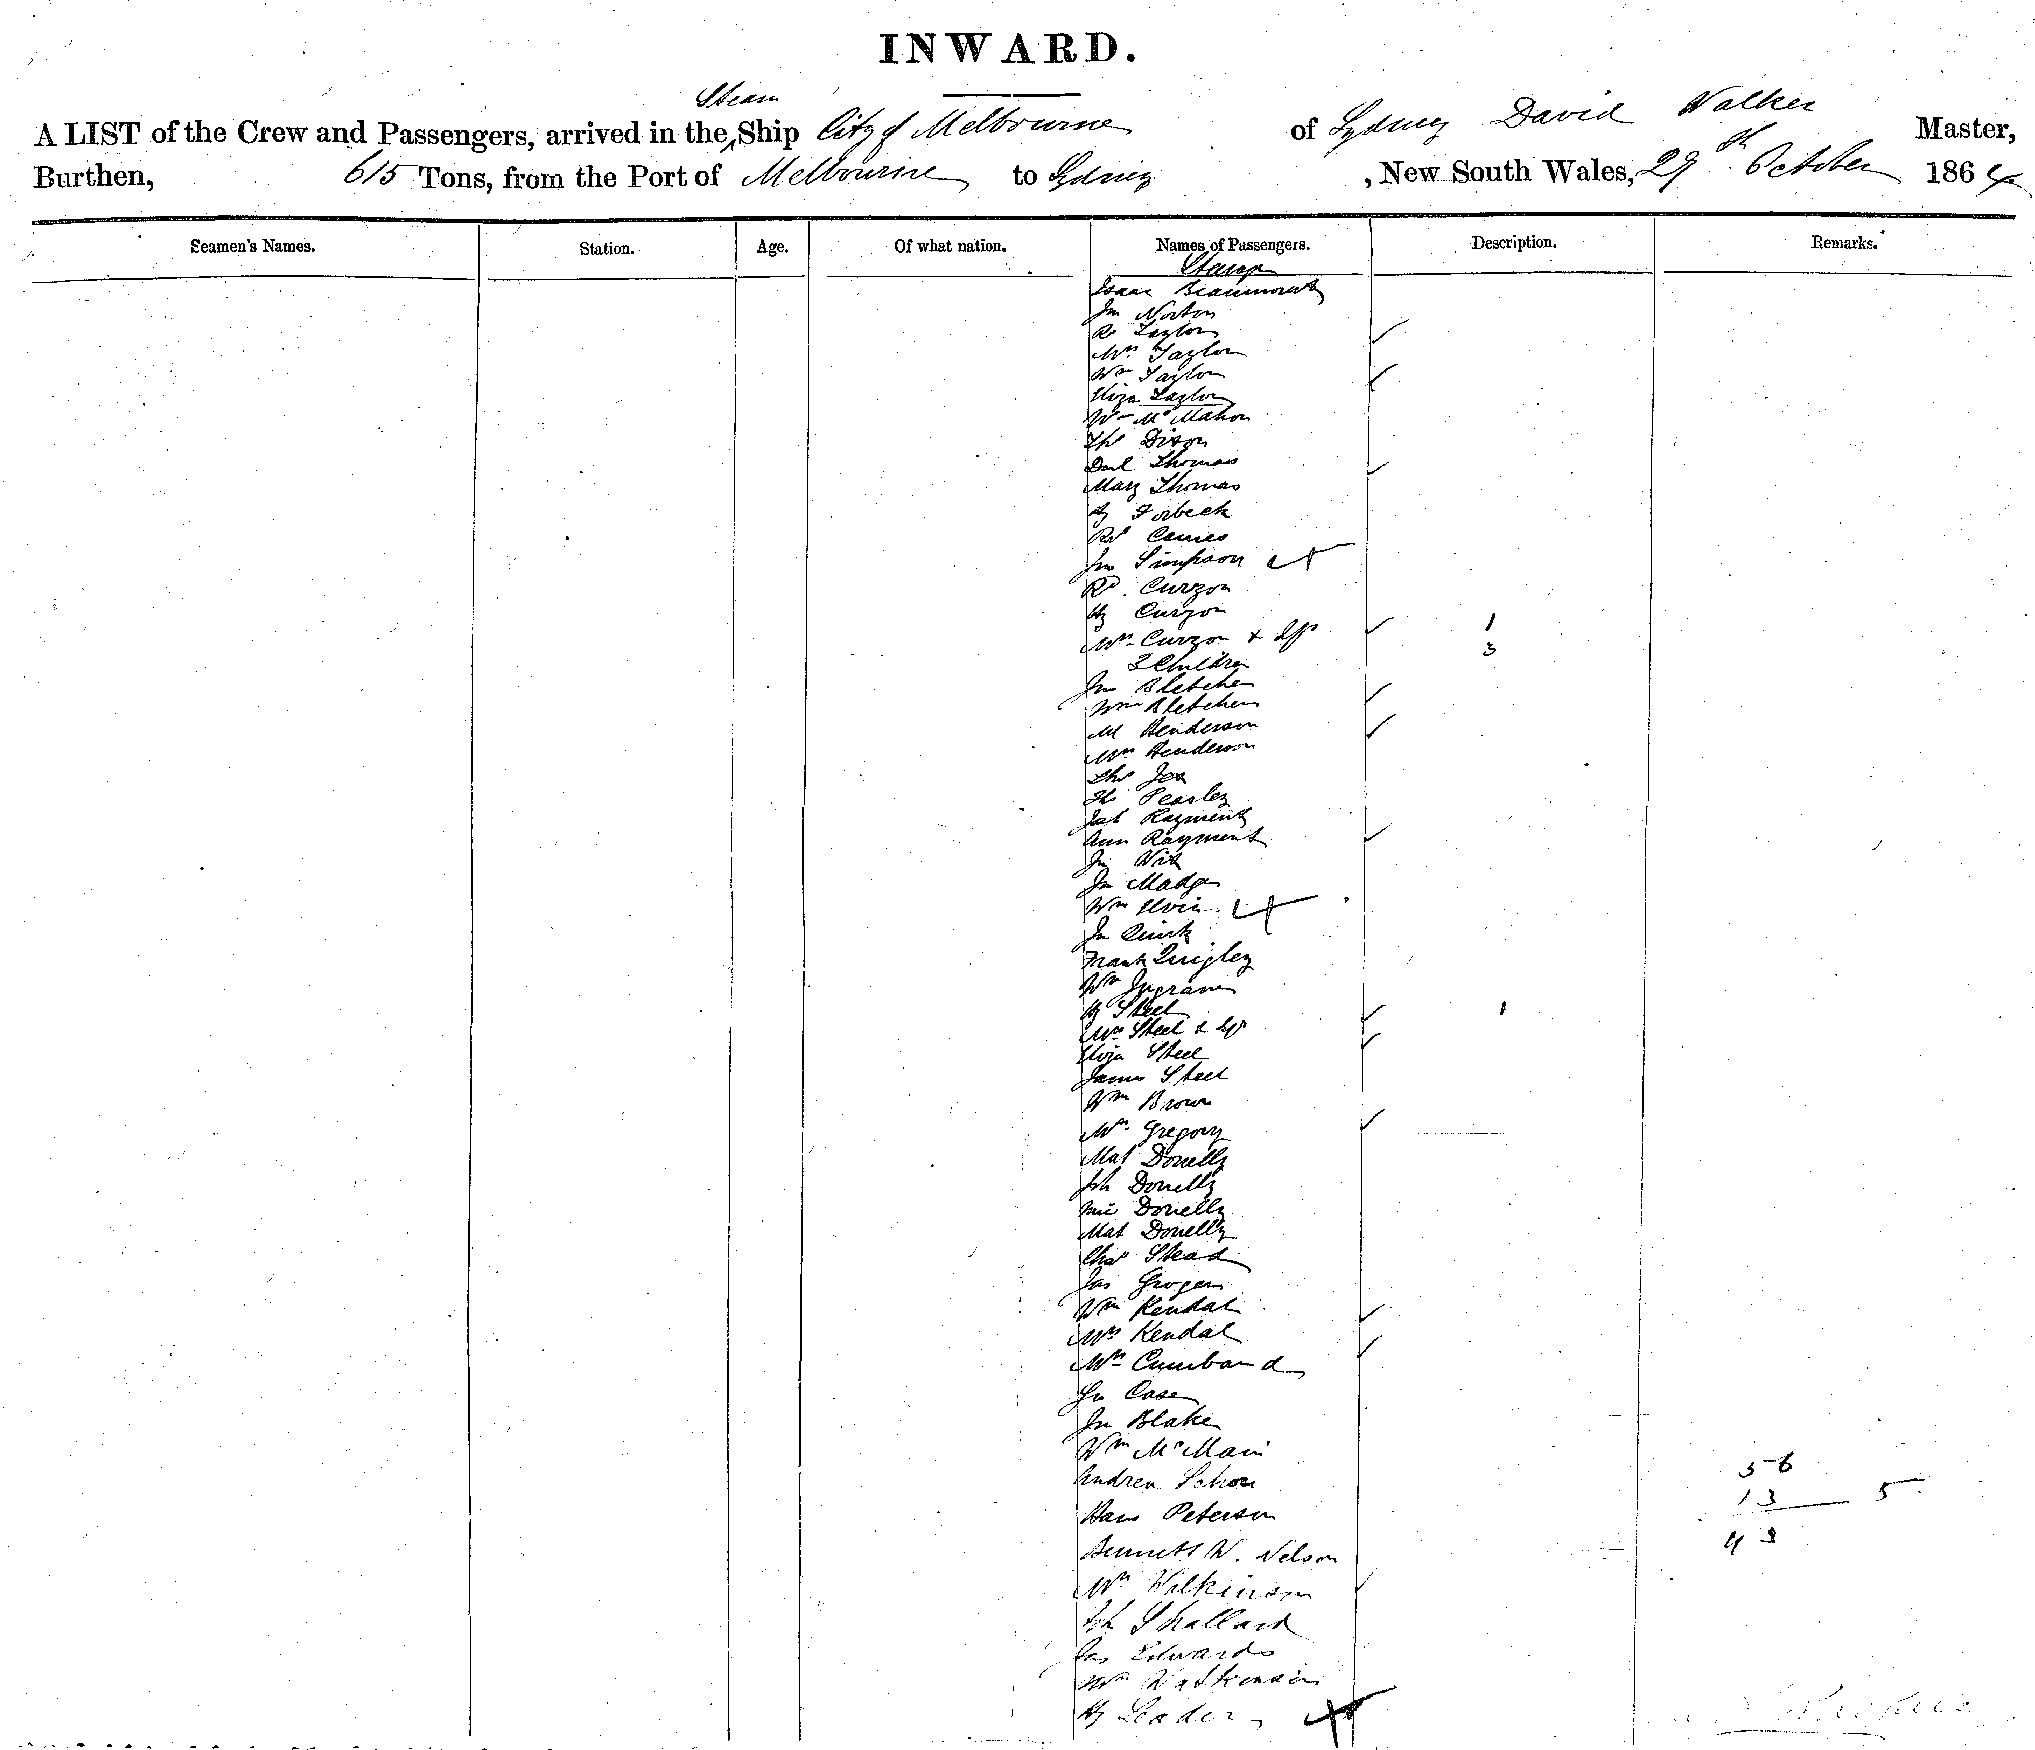 INWARD.
Steam
A LIST of the Crew and Passengers, arrived in the Ship City of Melbourne of Sydney David Walker Master,
Burthen, 615 Tons, from the Port of Melbourne to Sydney , New South Wales, 29th October 1864
Seamen's Names. Station. Age. Of what nation. Names of Passengers. Description. Remarks.
Isaac Beaumont
Jn Norton
R Taylor
Mrs Taylor
Wm Taylor
Eliza Taylor
Wm McMahon
Ths Dixon
Danl Thomas
Mary Thomas
Hy Forbeck
Rd
Jno Simpson
Rd. Curzon
Hy Curzon
Mrs Curzon + Ift 1
3 Children 3
Jno Bletcher
Wm Bletcher
M Henderson
Mrs Henderson
Ths
Ths Pearley
Rayment
Ann Rayment
Jn Nix
Jn Madge
Wm Elvin
Jn Quirk
Frank Quigley
Wm Ingram
Hy Steel
Mrs Steel & Ift 1
Eliza Steel
James Steel
Wm Brown
Mrs. Gregory
Mat Donelly
Jsh Donelly
Donelly
Mat Donelly
Chas Stead
Jas Grogen
Wm Kendal
Mrs Kendal
Mrs Cumband
Jn Case
Jn Blake
Wm McMain
Andrew Schon
Hans Peterson
Bennett W. Nelson
Mrs Wilkinson
Jsh Shallard
Jas Edwards
Wm Watkinson
Hy Leader
56
13 5
43